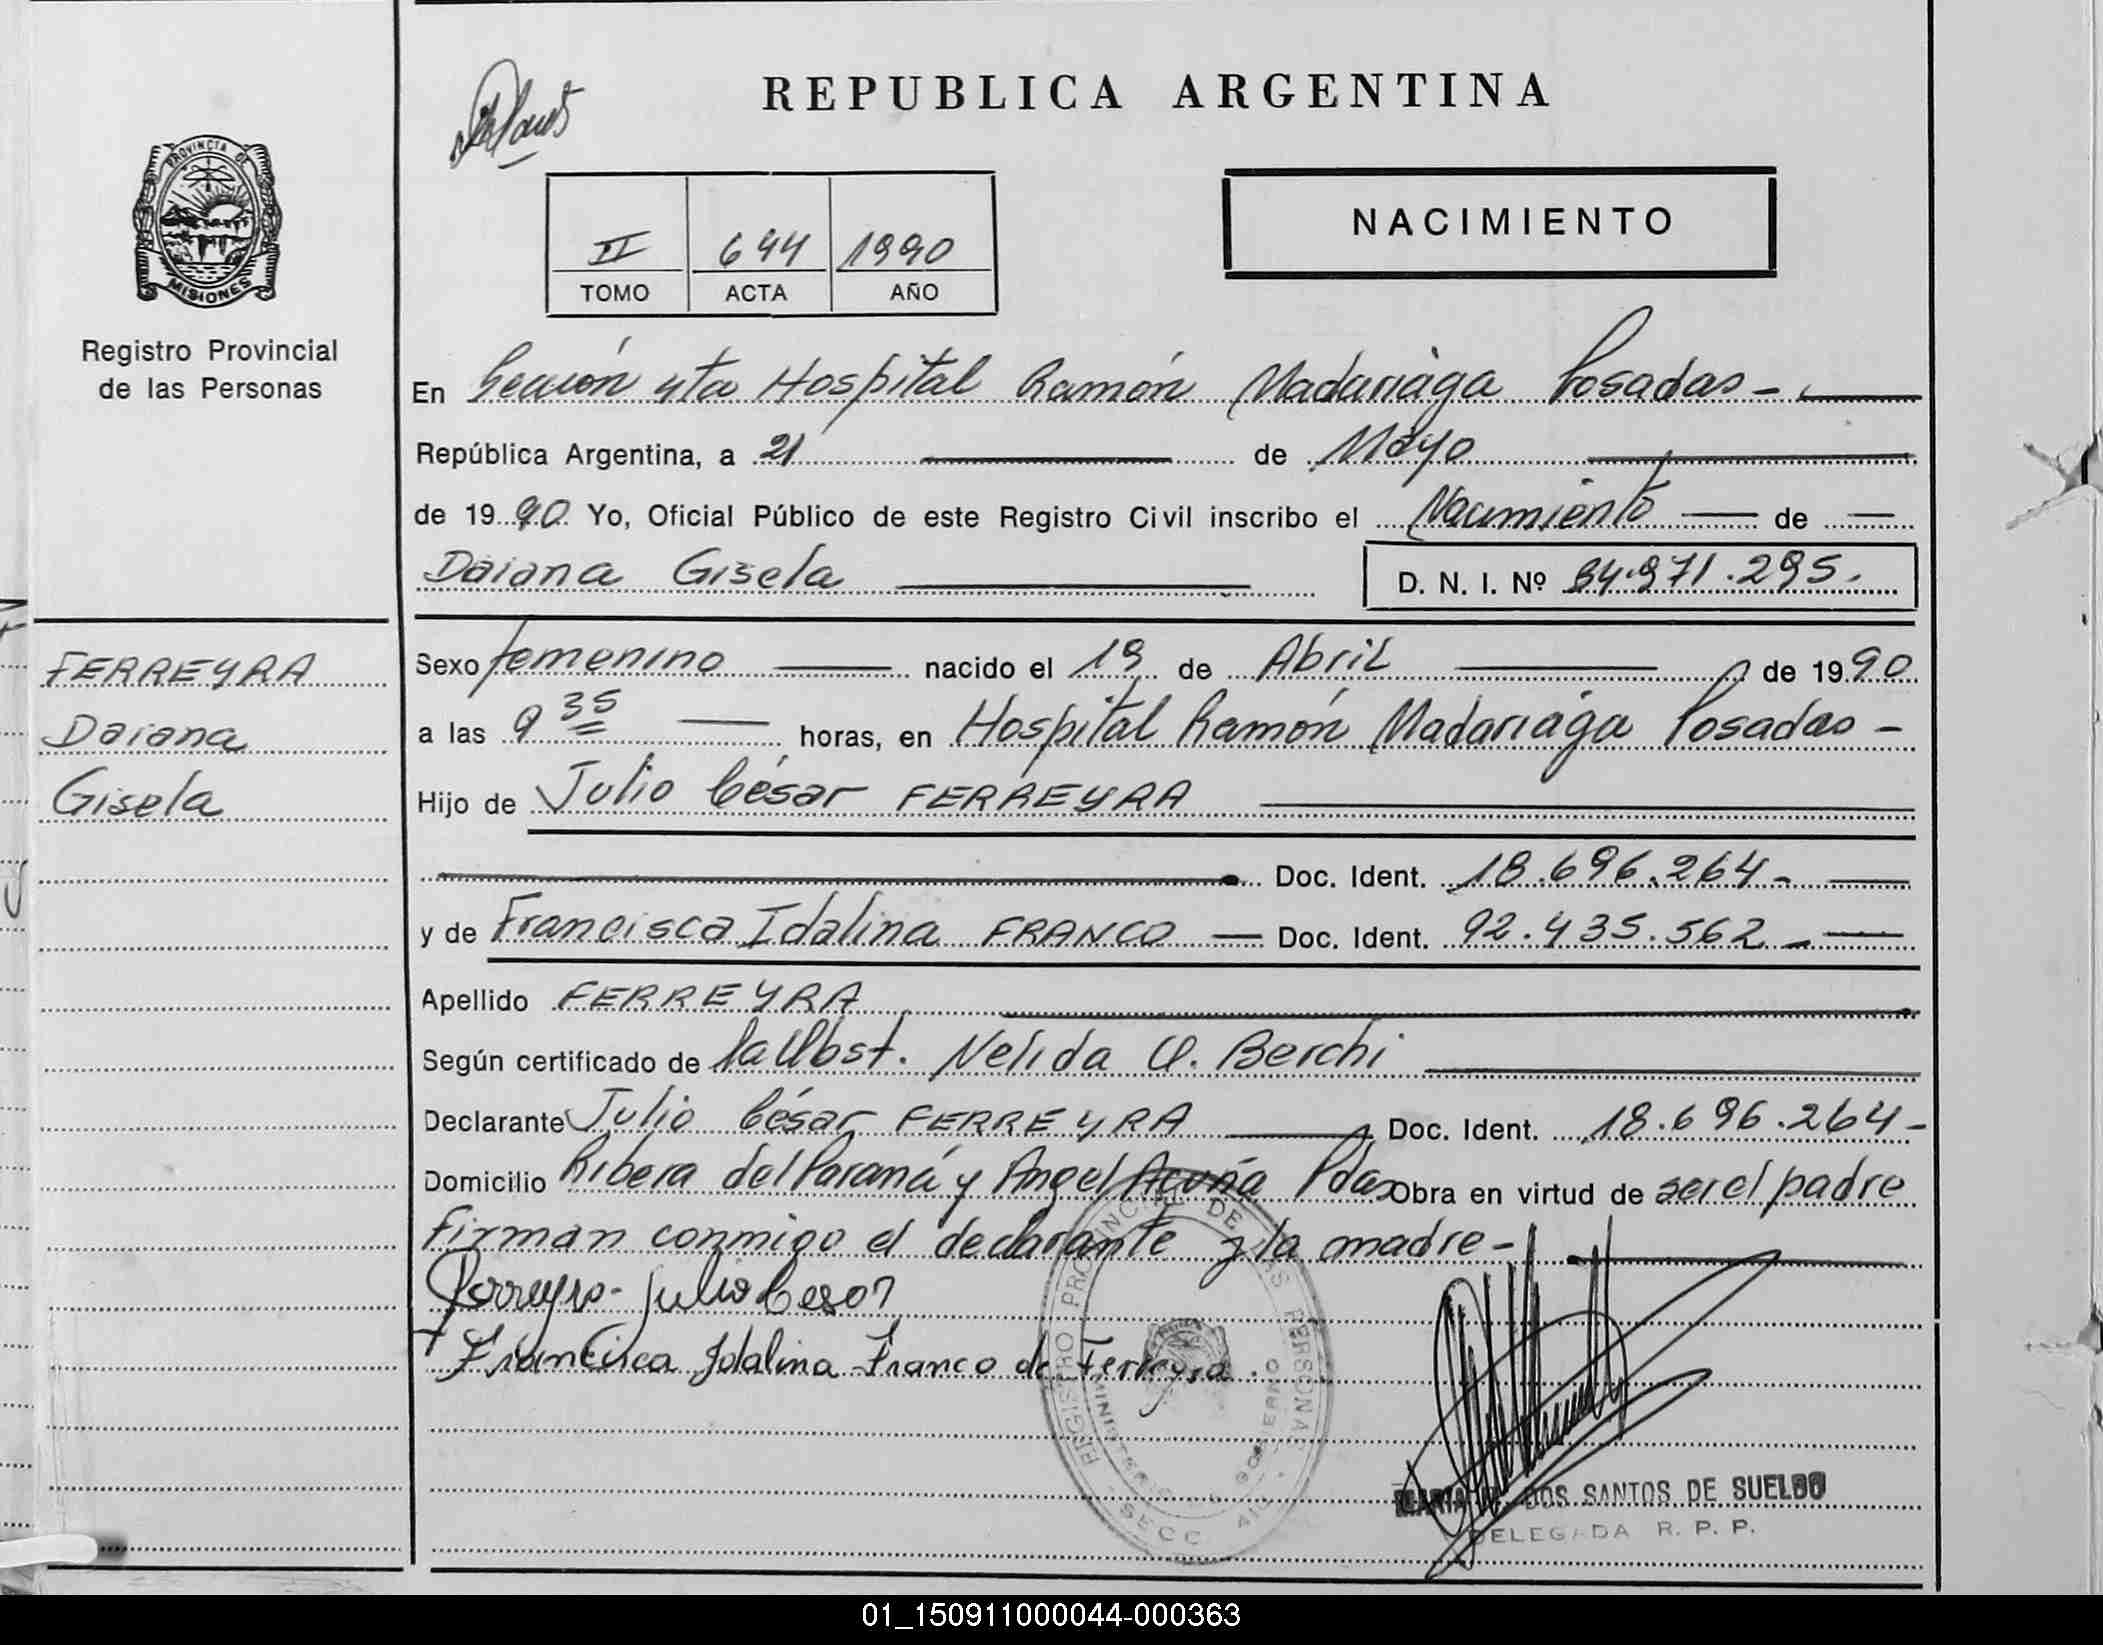 REPUBLICA ARGENTINA
PROVINCIA DE
MISIONES
Registro Provincial
de las Personas
NACIMIENTO
II 644 1990
TOMO ACTA AÑO
En Sección 4ta Hospital Ramón Madariaga Posadas -
República Argentina, a 21 de Mayo
de 1990 Yo, Oficial Público de este Registro Civil inscribo el Nacimiento de
Daiana Gisela D. N. I. Nº 34.971.295.
FERREYRA
Daiana
Gisela
Sexo femenino nacido el 19 de Abril de 1990
a las 9 35 horas, en Hospital Ramón Madariaga Posadas -
Hijo de Julio César FERREYRA
Doc. Ident. 18.696.264-
y de Francisca Idalina FRANCO - Doc. Ident. 92.435.562-
Apellido FERREYRA
Según certificado de la Obst. Nelida O. Berchi
Declarante Julio César FERREYRA Doc. Ident. 18.696.264-
Domicilio Ribera del Paraná y Angel Acuña Pdas Obra en virtud de ser el padre
Firman conmigo el declarante y la madre-
Ferreyra- Julio Cesar
+ Francisca Idalina Franco de Ferreyra.
REGISTRO PROVINCIAL DE LAS PERSONAS
DOS SANTOS DE SUELDO
DELEGADA R. P. P.
01_150911000044-000363